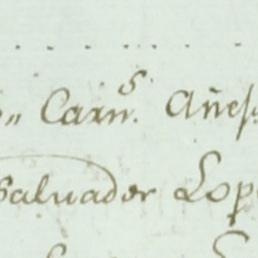 Carn.s Añes
Salvador Lop